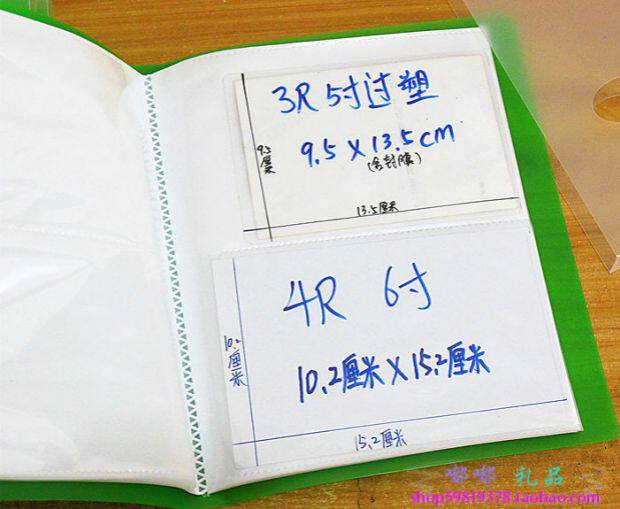 3R 5寸过塑
9.5 X 13.5cm
(含封膜)
9.5厘米
13.5厘米
4R 6寸
10.2厘米 X 15.2厘米
10.2厘米
15.2厘米
嘟嘟 礼品
shop59819378.taobao.com